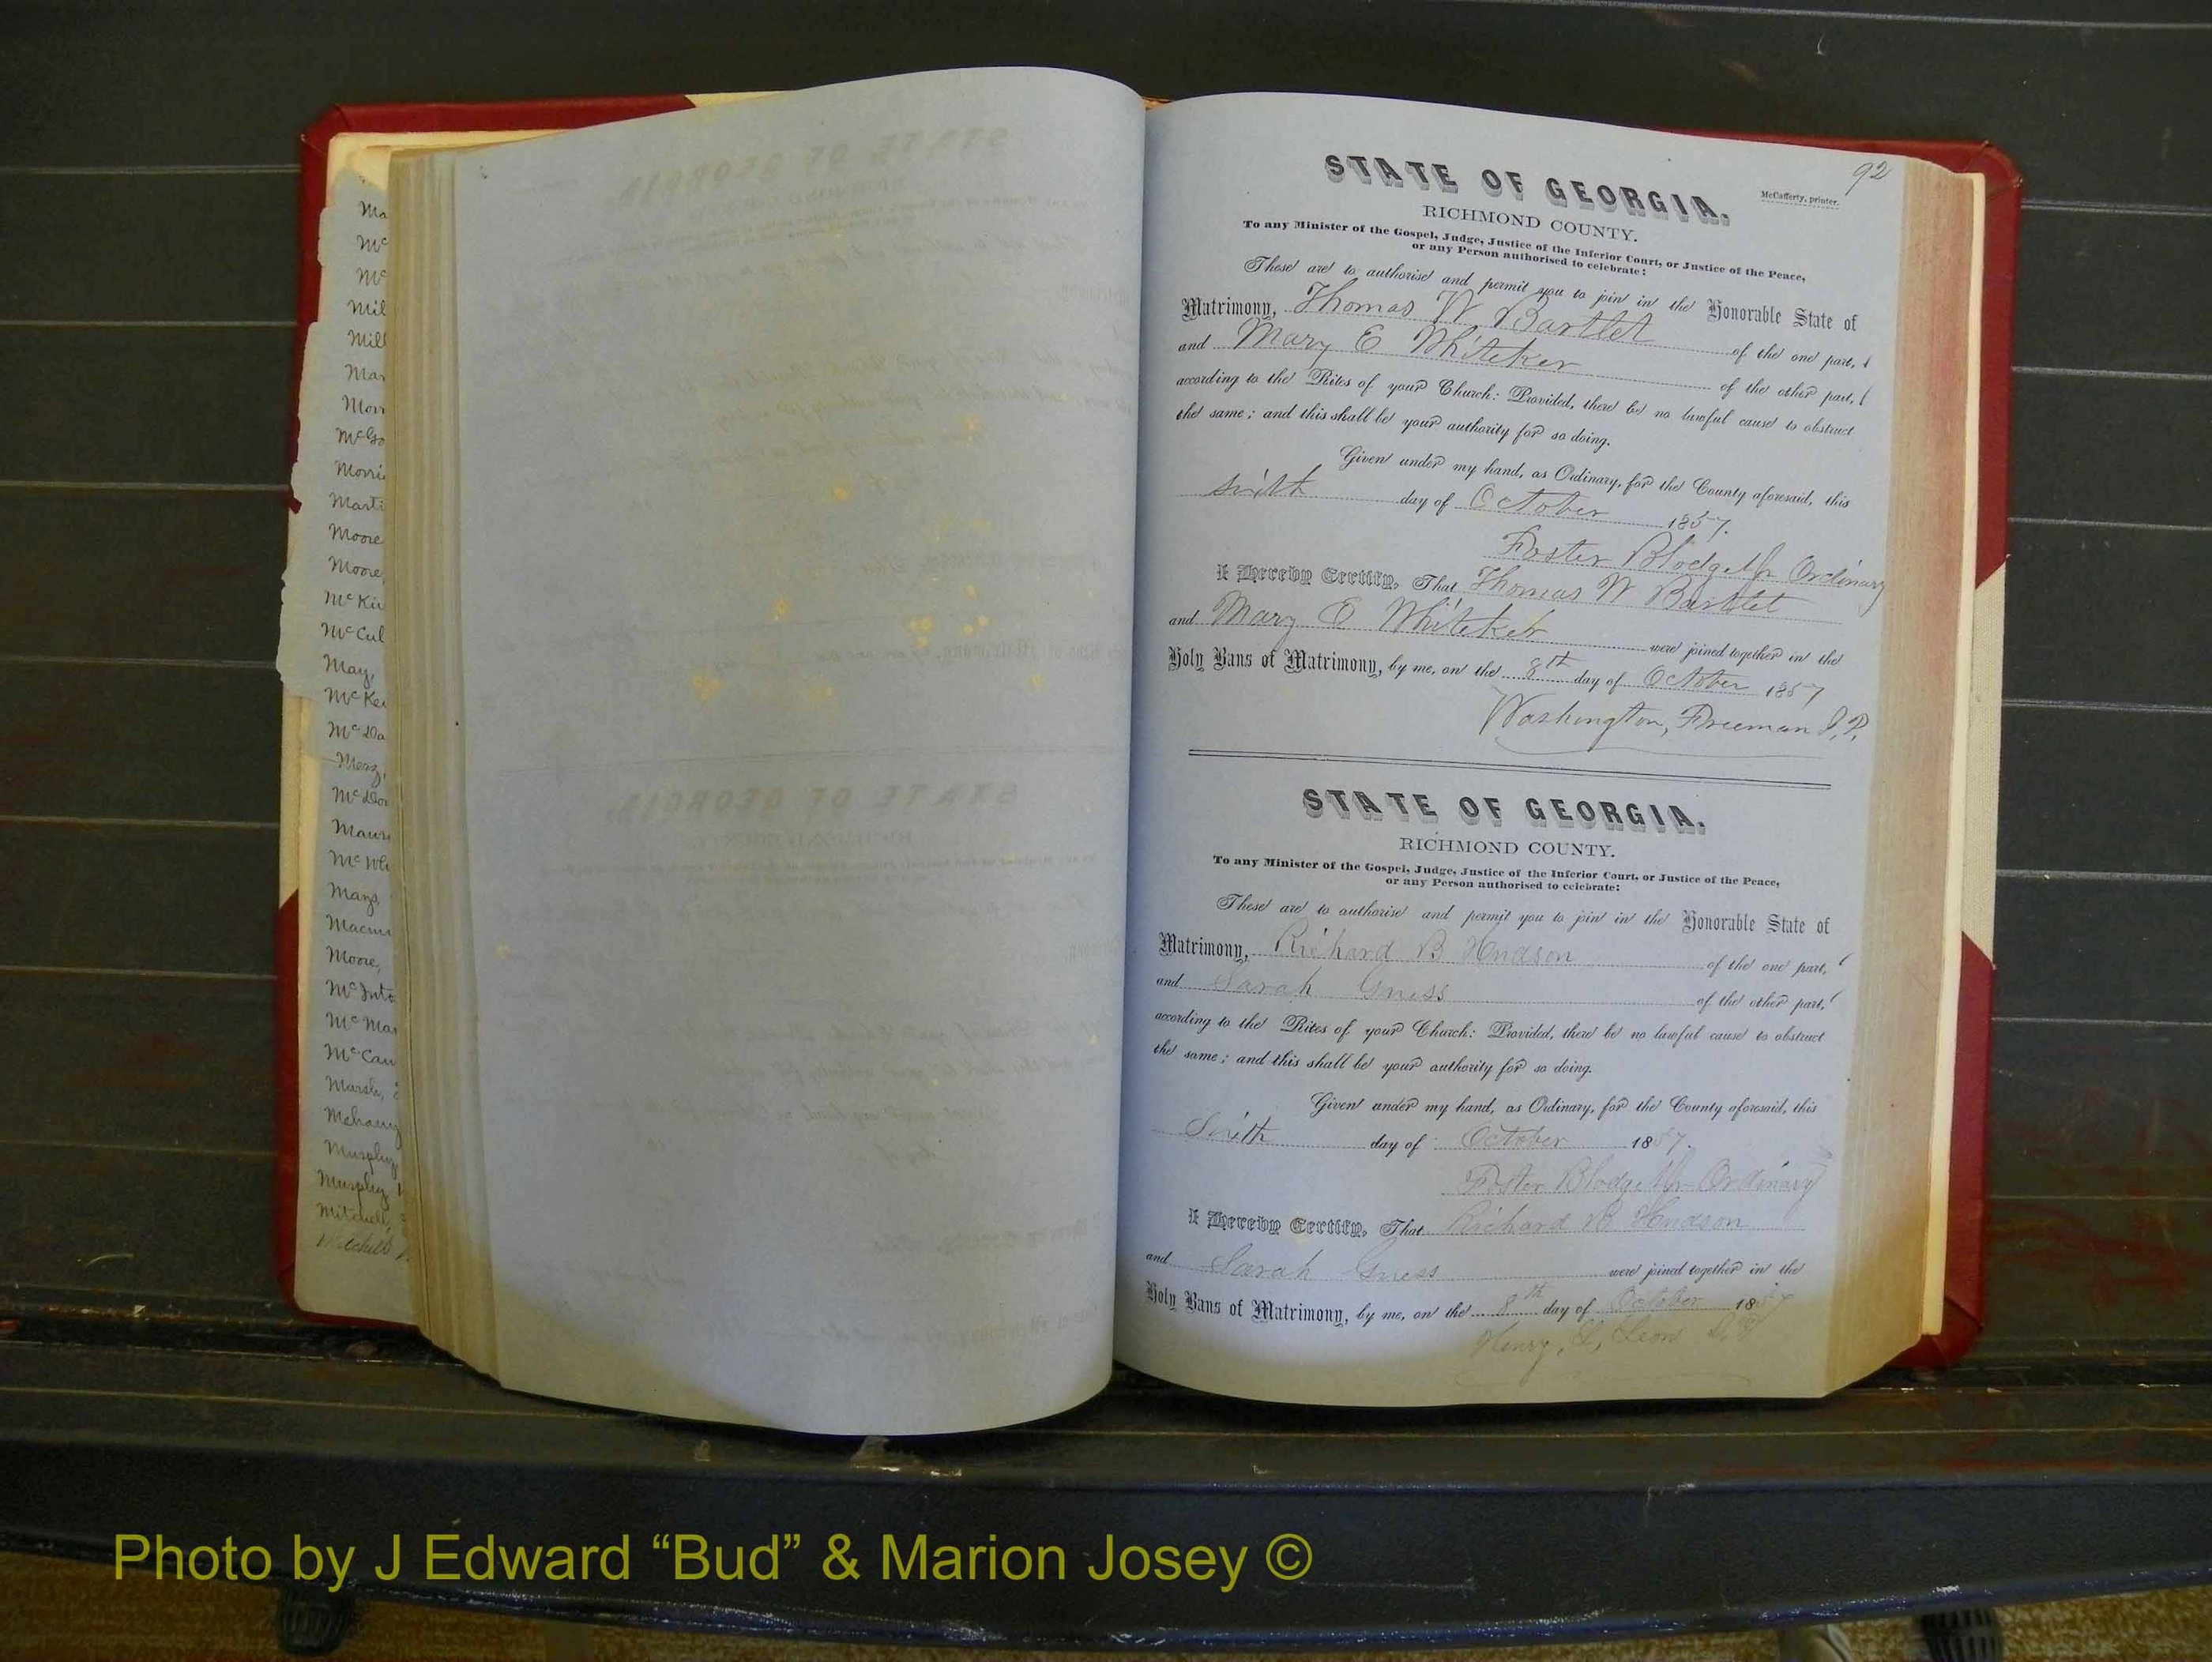 Ma
Mc
Mc
Mil
Mill
Mar
Morr
McGo
Morri
Marti
Moore
Moore,
McKi
McCul
May,
McKe
McDa
Merz,
McDon
Maur
McWh
Mays,
Macm
Moore,
McInto
McMa
McCan
Marsh,
Mahany
Murphy
Murphy
Mitchell,
Mitchell
92
McCafferty, printer.
STATE OF GEORGIA.
RICHMOND COUNTY.
To any Minister of the Gospel, Judge, Justice of the Inferior Court, or Justice of the Peace,
or any Person authorised to celebrate:
These are to authorise and permit you to join in the Honorable State of
Matrimony, Thomas W Bartlet of the one part,
and Mary E Whiteker of the other part,
according to the Rites of your Church: Provided, there be no lawful cause to obstruct
the same; and this shall be your authority for so doing.
Given under my hand, as Ordinary, for the County aforesaid, this
sixth day of October 1857.
Foster Blodget Jr Ordinary
I Hereby Certify, That Thomas W Bartlet
and Mary E Whiteker were joined together in the
Holy Bans of Matrimony, by me, on the 8th day of October 1857
Washington, Freeman J,P,
STATE OF GEORGIA.
RICHMOND COUNTY.
To any Minister of the Gospel, Judge, Justice of the Inferior Court, or Justice of the Peace,
or any Person authorised to celebrate:
These are to authorise and permit you to join in the Honorable State of
Matrimony, Richard B Hudson of the one part,
and Sarah Guess of the other part,
according to the Rites of your Church: Provided, there be no lawful cause to obstruct
the same; and this shall be your authority for so doing.
Given under my hand, as Ordinary, for the County aforesaid, this
Sixth day of October 1857.
Foster Blodget Jr Ordinary
I Hereby Certify, That Richard B Hudson
and Sarah Guess were joined together in the
Holy Bans of Matrimony, by me, on the 8th day of October 1857
Henry, Leon
Photo by J Edward “Bud” & Marion Josey ©